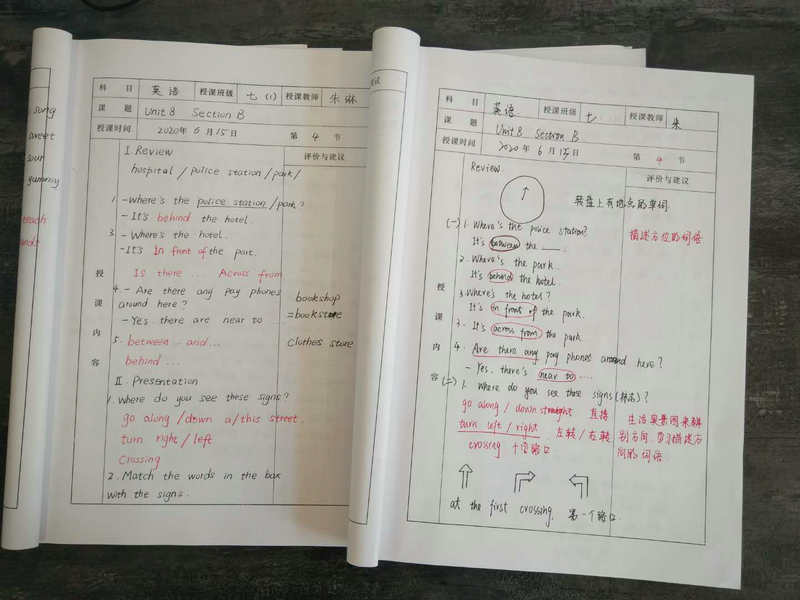 song
sweet
sour
yummy
teach
科 目 英语 授课班级 七.(1) 授课教师 朱琳
课 题 Unit 8 Section B
授课时间 2020年6月15日 第 4 节
授课内容
评价与建议
I Review
hospital / police station / park /
1. -Where's the police station / park?
- It's behind the hotel.
3 - Where's the hotel.
-It's In front of the park.
Is there ... Across from
4 - Are there any pay phones
around here?
- Yes there are near to
5. between - and...
behind ...
bookshop
=bookstore
clothes store
II. Presentation
1. Where do you see these signs?
go along / down a/this street.
turn right / left
Crossing
2. Match the words in the box
with the signs.
科 目 英语 授课班级 七 授课教师 朱
课 题 Unit 8 Section B
授课时间 2020年6月15日 第 4 节
授课内容
评价与建议
Review
转盘上有地点的单词
(一) 1. Where's the police station?
It's between the ___.
2. Where's the park.
It's behind the hotel.
3. Where's the hotel?
It's in front of the park.
3. It's across from the park.
4. Are there any pay phones around here?
- Yes, there's near to ....
描述方位的词语
(二) 1. Where do you see these signs (标志)?
go along / down straight 直接
turn left / right 左转 / 右转
crossing 十字路口
生活实景图来辨
别方向,学习描述方
向的词语
at the first crossing. 第一个路口.